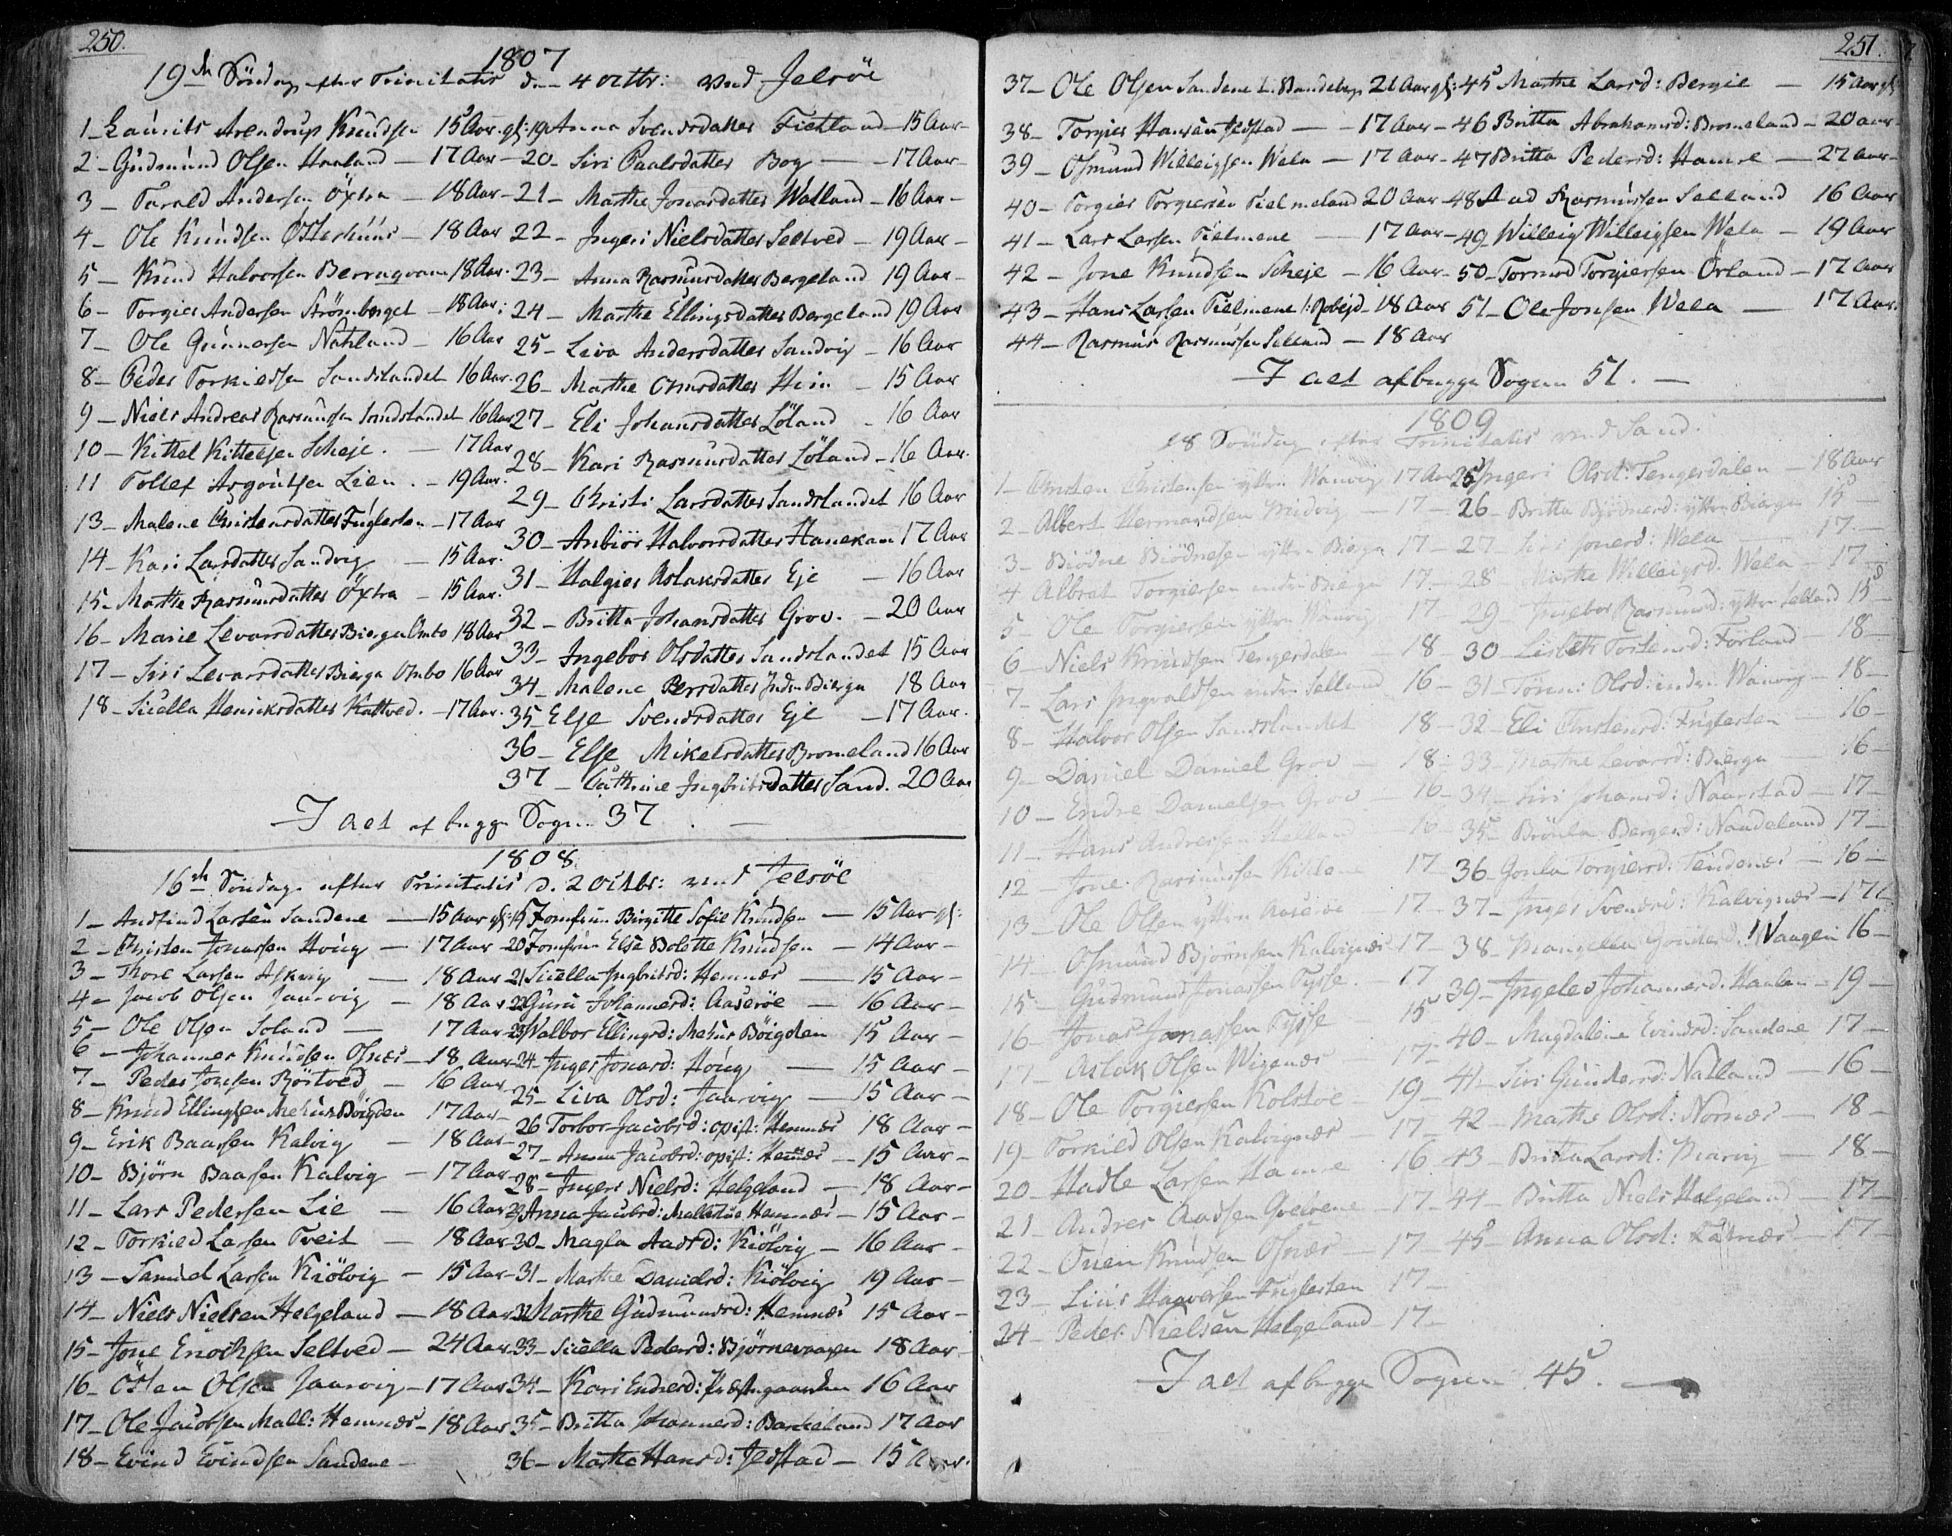 250.
1807
19de Söndag efter Trinitatis d. 4 Octbr: ved Jelsöe
1 – Laurits Arendrup Knudsen 15 Aar gl:
2 – Gudmund Olsen Haaland – 17 Aar –
3 – Tarald Andersen Öxtra – 18 Aar –
4 – Ole Knudsen Østerhuus – 18 Aar
5 – Knud Halvorsen Berraqvam 18 Aar.
6 – Torgier Andersen Strömberget – 18 Aar:
7 – Ole Gunnersen Nahland – 16 Aar
8 – Peder Torkieldsen Sandslandet 16 Aar
9 – Niels Andreas Rasmusen Sandslandet 16 Aar
10 – Kittel Kittelsen Scheje. – 17 Aar
11 Tollef Asgoutsen Lien. – 19 Aar.
13 – Malene Christensdatter Fuglesten – 17 Aar
14 – Kari Larsdatter Sandvig – 15 Aar.
15 – Marthe Rasmusdatter Öxtra – 15 Aar.
16 – Marie Levorsdatter Bierga Ombo 18 Aar
17 – Siri Levorsdatter Bierga Ombo 16 Aar
18 – Sicella Henricksdatter Kattved. – 17 Aar.
19 Anna Svendsdatter Fietland – 15 Aar –
20 – Siri Paalsdatter Bog – 17 Aar –
21 – Marthe Jonasdatter Walland – 16 Aar –
22 – Ingeri Nielsdatter Seltved – 19 Aar –
23 – Anna Rasmusdatter Bergeland 19 Aar –
24 – Marthe Ellingsdatter Bergeland 19 Aar
25 – Liva Andersdatter Sandvig – 16 Aar
26 – Marthe Omsdatter Heim – 15 Aar
27 – Eli Johansdatter Löland – 16 Aar
28 – Kari Rasmusdatter Löland – 16 Aar.
29 – Christi Larsdatter Sandslandet 16 Aar
30 – Anbiör Halvorsdatter Hanekam 17 Aar
31 – Halgier Aslaksdatter Eje – 16 Aar
32 – Britta Johansdatter Grov. – 20 Aar
33 – Ingebor Olsdatter Sandslandet 15 Aar
34 – Malene Persdatter Indre Bierga 18 Aar
35 – Else Svendsdatter Eje – 17 Aar.
36 – Else Mikelsdatter Bromeland 16 Aar
37 – Cathrine Ingbritsdatter Sand. 20 Aar
I alt af begge Sogne 37.
1808
16de Söndag efter Trinitatis d. 2 Octbr: ved Jelsöe
1 – Andfind Larsen Sandene – 15 Aar gl:
2 – Christen Jonassen Houg – 17 Aar –
3 – Thore Larsen Askvig – 18 Aar
4 – Jacob Olsen Jaasvig – 18 Aar
5 – Ole Olsen Soland – 17 Aar
6 – Johannes Knudsen Osnæs – 18 Aar
7 – Peder Jonsen Börtved – 16 Aar
8 – Knud Ellingsen Mehus Böigden 17 Aar
9 – Erik Baarsen Kalvig – 18 Aar
10 – Björn Baarsen Kalvig – 17 Aar
11 – Lars Pedersen Lie – 16 Aar
12 – Torkied Larsen Tveit – 18 Aar
13 – Samuel Larsen Kiölvig – 15 Aar
14 – Niels Nielsen Helgeland – 18 Aar
15 – Jone Enochsen Seltved – 24 Aar
16 – Östen Olsen Jaasvig – 17 Aar
17 – Ole Jacobsen Mall: Hemnæs – 18 Aar
18 – Evind Evindsen Sandene –
19 Jomfrue Birgitte Sofie Knudsen – 15 Aar gl:
20 Jomfrue Elsa Bolette Knudsen – 14 Aar –
21 Sicella Ingbritsd: Hemnæs – 15 Aar –
22 Guru Johannesd: Aaseröe – 16 Aar –
23 Walbor Ellingsd: Mehus Böigden 15 Aar –
24 – Inger Jonasd: Houg – 15 Aar –
25 – Liva Olsd: Jaasvig – 15 Aar –
26 Torbor Jacobsd: opist: Hemnæs 18 Aar –
27 – Anna Jacobsd: opist: Hemnæs – 15 Aar –
28 – Ingeri Nielsd: Helgeland – 18 Aar –
29 Anna Jacobsd: Hemnæs – 15 Aar –
30 – Magla Aadsd: Kiölvig – 16 Aar –
31 – Marthe Danielsd: Kiölvig 19 Aar –
32 Marthe Gudmunsd: Hemnæs 15 Aar –
33 – Sicella Pedersd: Björnevaagen 18 Aar –
34 – Kari Endresd: Præstegaarden 16 Aar
35 – Britta Johannesd: Barkeland 17 Aar
36 – Marthe Hansd: Jedstad – 15 Aar.
251.
37 – Ole Olsen Sandene 21 Aar gl:
38 – Torgier Hansen Jedstad – 17 Aar –
39 – Osmund Willeigsen Wela – 17 Aar –
40 – Torgier Torgiersen Fielmeland 20 Aar –
41 – Lars Larsen Fielmene – 17 Aar –
42 – Jone Knudsen Scheje – 16 Aar –
43 – Hans Larsen Fielmene 18 Aar
44 – Rasmus Rasmusen Selland – 18 Aar
45 Marthe Larsd: Bergie – 15 Aar gl
46 Britta Abrahamsd: Bromeland – 20 aar
47 Britta Pedersd: Hamre – 22 aar –
48 Aad Rasmusen Selland 16 Aar
49 Willeig Willeigsen Wela – 19 Aar
50 – Tormod Torgiersen Örland – 17 Aar
51 – Ole Jonsen Wela – 17 Aar.
I alt af begge Sogne 51. –
1809
18 Söndag efter Trinitatis ved Sand.
1 – Christen Christensen yttre Wanvig 17 Aar
2 – Albert Hermandsen – 17 –
3 – Biödne Biödnesen yttre Bierga 17 –
4 Albret Torgiersen indre Bierga 17 –
5 – Ole Torgiersen yttre Wanvig 17
6 – Niels Knudsen Tengesdalen – 18 –
7 – Lars Ingvaldsen indre Selland 16 –
8 – Halvor Olsen Sandslandet 18 –
9 – Daniel Daniel Grov – 18 –
10 – Endre Danielsen Grov – 16 –
11 – Hans Andersen 16 –
12 – Jone Rasmussen 17 –
13 – Ole Olsen yttre 17 –
14 Osmund Bjornsen Kalvignæs 17
15 – Gudmund Jonassen Fysse. – 17
16 – Jonas Jonassen Fysse 15
17 – Aslak Olsen Wigenæs 17 –
18 – Ole Torgiersen Kolstöe 19 –
19 – Torkied Olsen Kalvignæs – 17 –
20 – Hadle Larsen Hamre 16
21 – Andres Aadsen 17 –
22 – Knudsen Osnæs – 17 –
23 – Fuglesten 17 –
24 – Peder Nielsen Helgeland 17 –
25 Ingeri Olsd: Tengesdalen – 18 Aar
26 – Britta Biödnesd: yttre Bierga 15 –
27 – Siri Jonesd: Wela 17. –
28 – Marthe Willeigsd. Wela – 17 –
29 – Ingebor Rasmusd: yttre Selland 15 –
30 – Lisbeth Torstensd: Forland 18 –
31 – Olsd: indre Wanvig – 18 –
32 – Eli Christensd: Fuglesten – 16 –
33 – Marthe Levorsd: Bierga – 16 –
34 – Siri Johansd: Naarstad – 17 –
35 – Brönla Bergesd: Nandeland 17 –
36 – Gonla Torgiersd: – 16 –
37 – Inger Svendsd: Kalvignæs – 17
38 – Waagen 16 –
39 – Ingelev Johannesd. – 19 –
40 – Magdalene Evindsd: Sandene 17 –
41 – Siri Gundersd: Natland – 16 –
42 – Marthe Olsd: – 18 –
43 – Britta Larsd: – 18 –
44 – Britta Niels Helgeland – 17 –
45 – Anna Olsd: 17 –
I alt af begge Sogne 45. –